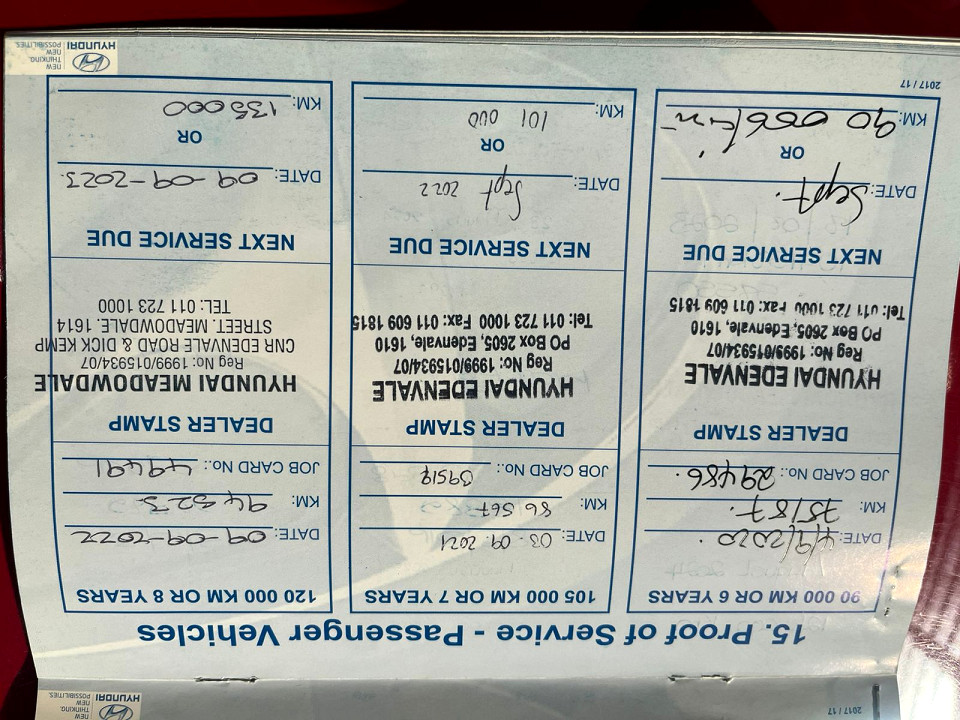 15. Proof of Service - Passenger Vehicles
90 000 KM OR 6 YEARS
DATE: 4/9/2020.
KM: 75187.
JOB CARD No.: 29486.
DEALER STAMP
HYUNDAI EDENVALE
Reg No: 1999/015934/07
PO Box 2605, Edenvale, 1610
Tel: 011 723 1000 Fax: 011 609 1815
NEXT SERVICE DUE
DATE: Sept.
OR
KM: 90 000
105 000 KM OR 7 YEARS
DATE: 03-09.2021
KM: 86 567
JOB CARD No.: 39519
DEALER STAMP
HYUNDAI EDENVALE
Reg No: 1999/015934/07
PO Box 2605, Edenvale, 1610
Tel: 011 723 1000 Fax: 011 609 1815
NEXT SERVICE DUE
DATE: Sept 2022
OR
KM: 101 000
120 000 KM OR 8 YEARS
DATE: 09-09-2022
KM: 94 523
JOB CARD No.: 49491
DEALER STAMP
HYUNDAI MEADOWDALE
Reg No: 1999/015934/07
CNR EDENVALE ROAD & DICK KEMP
STREET. MEADOWDALE. 1614
TEL: 011 723 1000
NEXT SERVICE DUE
DATE: 09-09-2023.
OR
KM: 135000
2017 / 17
HYUNDAI
NEW THINKING.
NEW POSSIBILITIES.
2017 / 17
HYUNDAI
NEW THINKING.
NEW POSSIBILITIES.